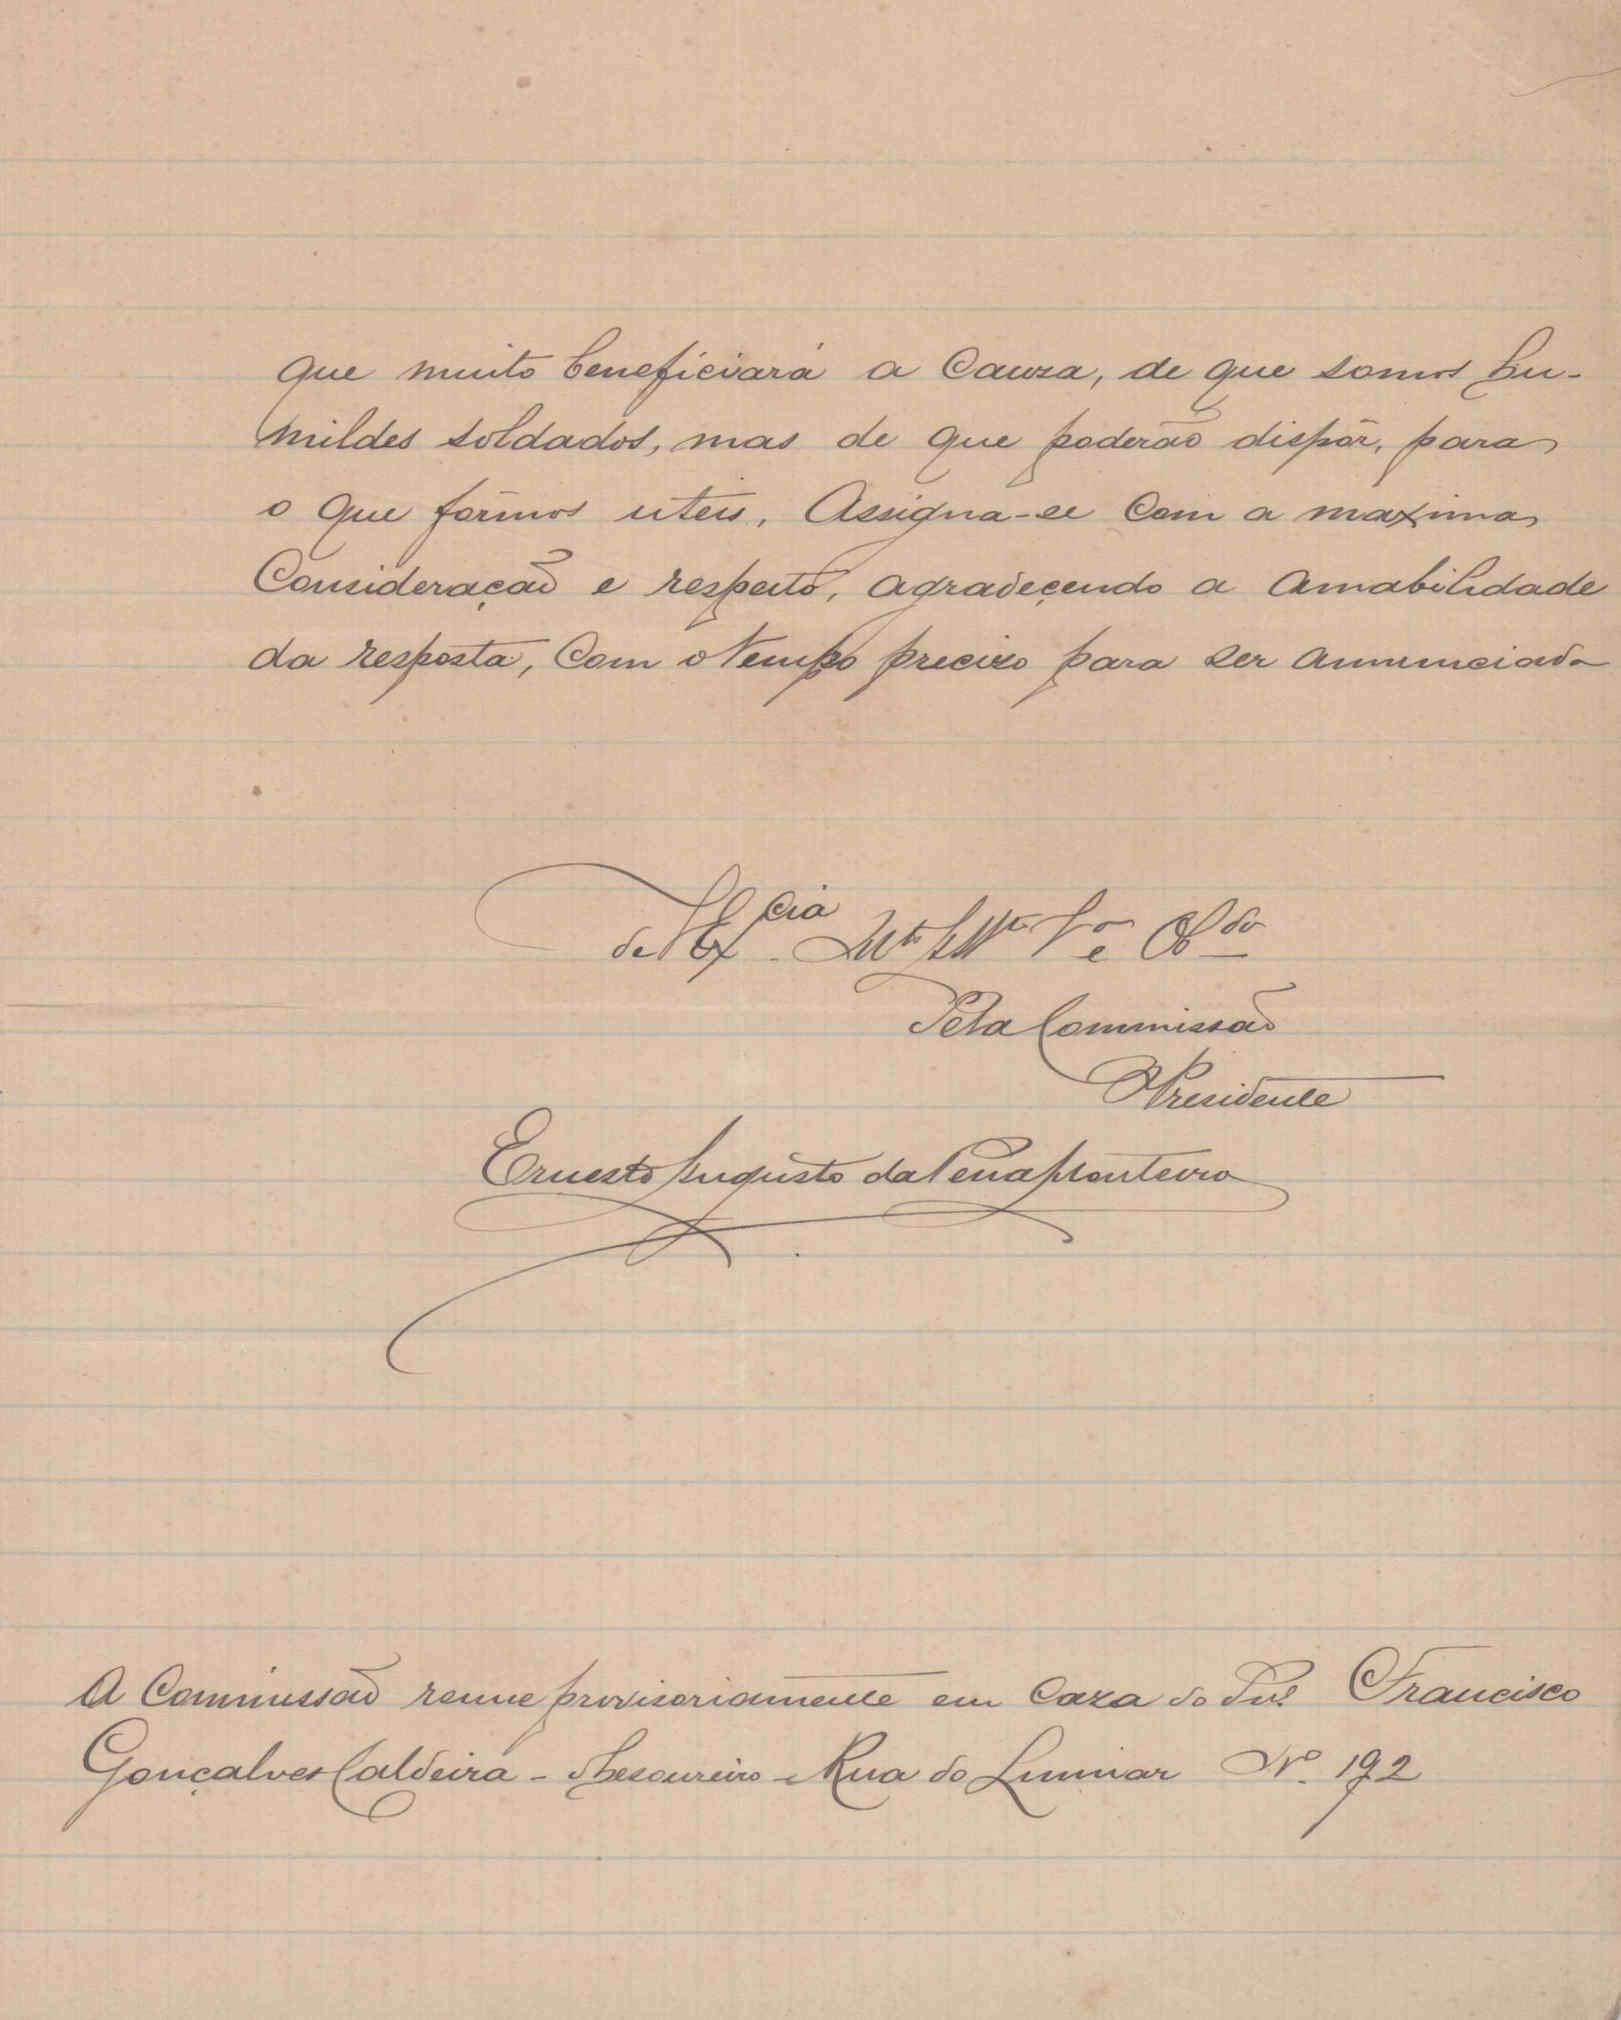 que muito beneficiará a Cauza, de que somos hu-
mildes soldados, mas de que poderão dispôr, para
o que fôrmos uteis. Assigna-se Com a maxima
Consideração e respeito, agradeçendo a amabilidade
da resposta, Com o tempo precizo para ser annunciada
de V. Ex.cia Mto Vor e Obdo
Pela Commissão
O Presidente
Ernesto Augusto da Pena Monteiro
A Commissão reune provisoriamente em Caza do Snr. Francisco
Gonçalves Caldeira - Thesoureiro - Rua do Lumiar Nº 192